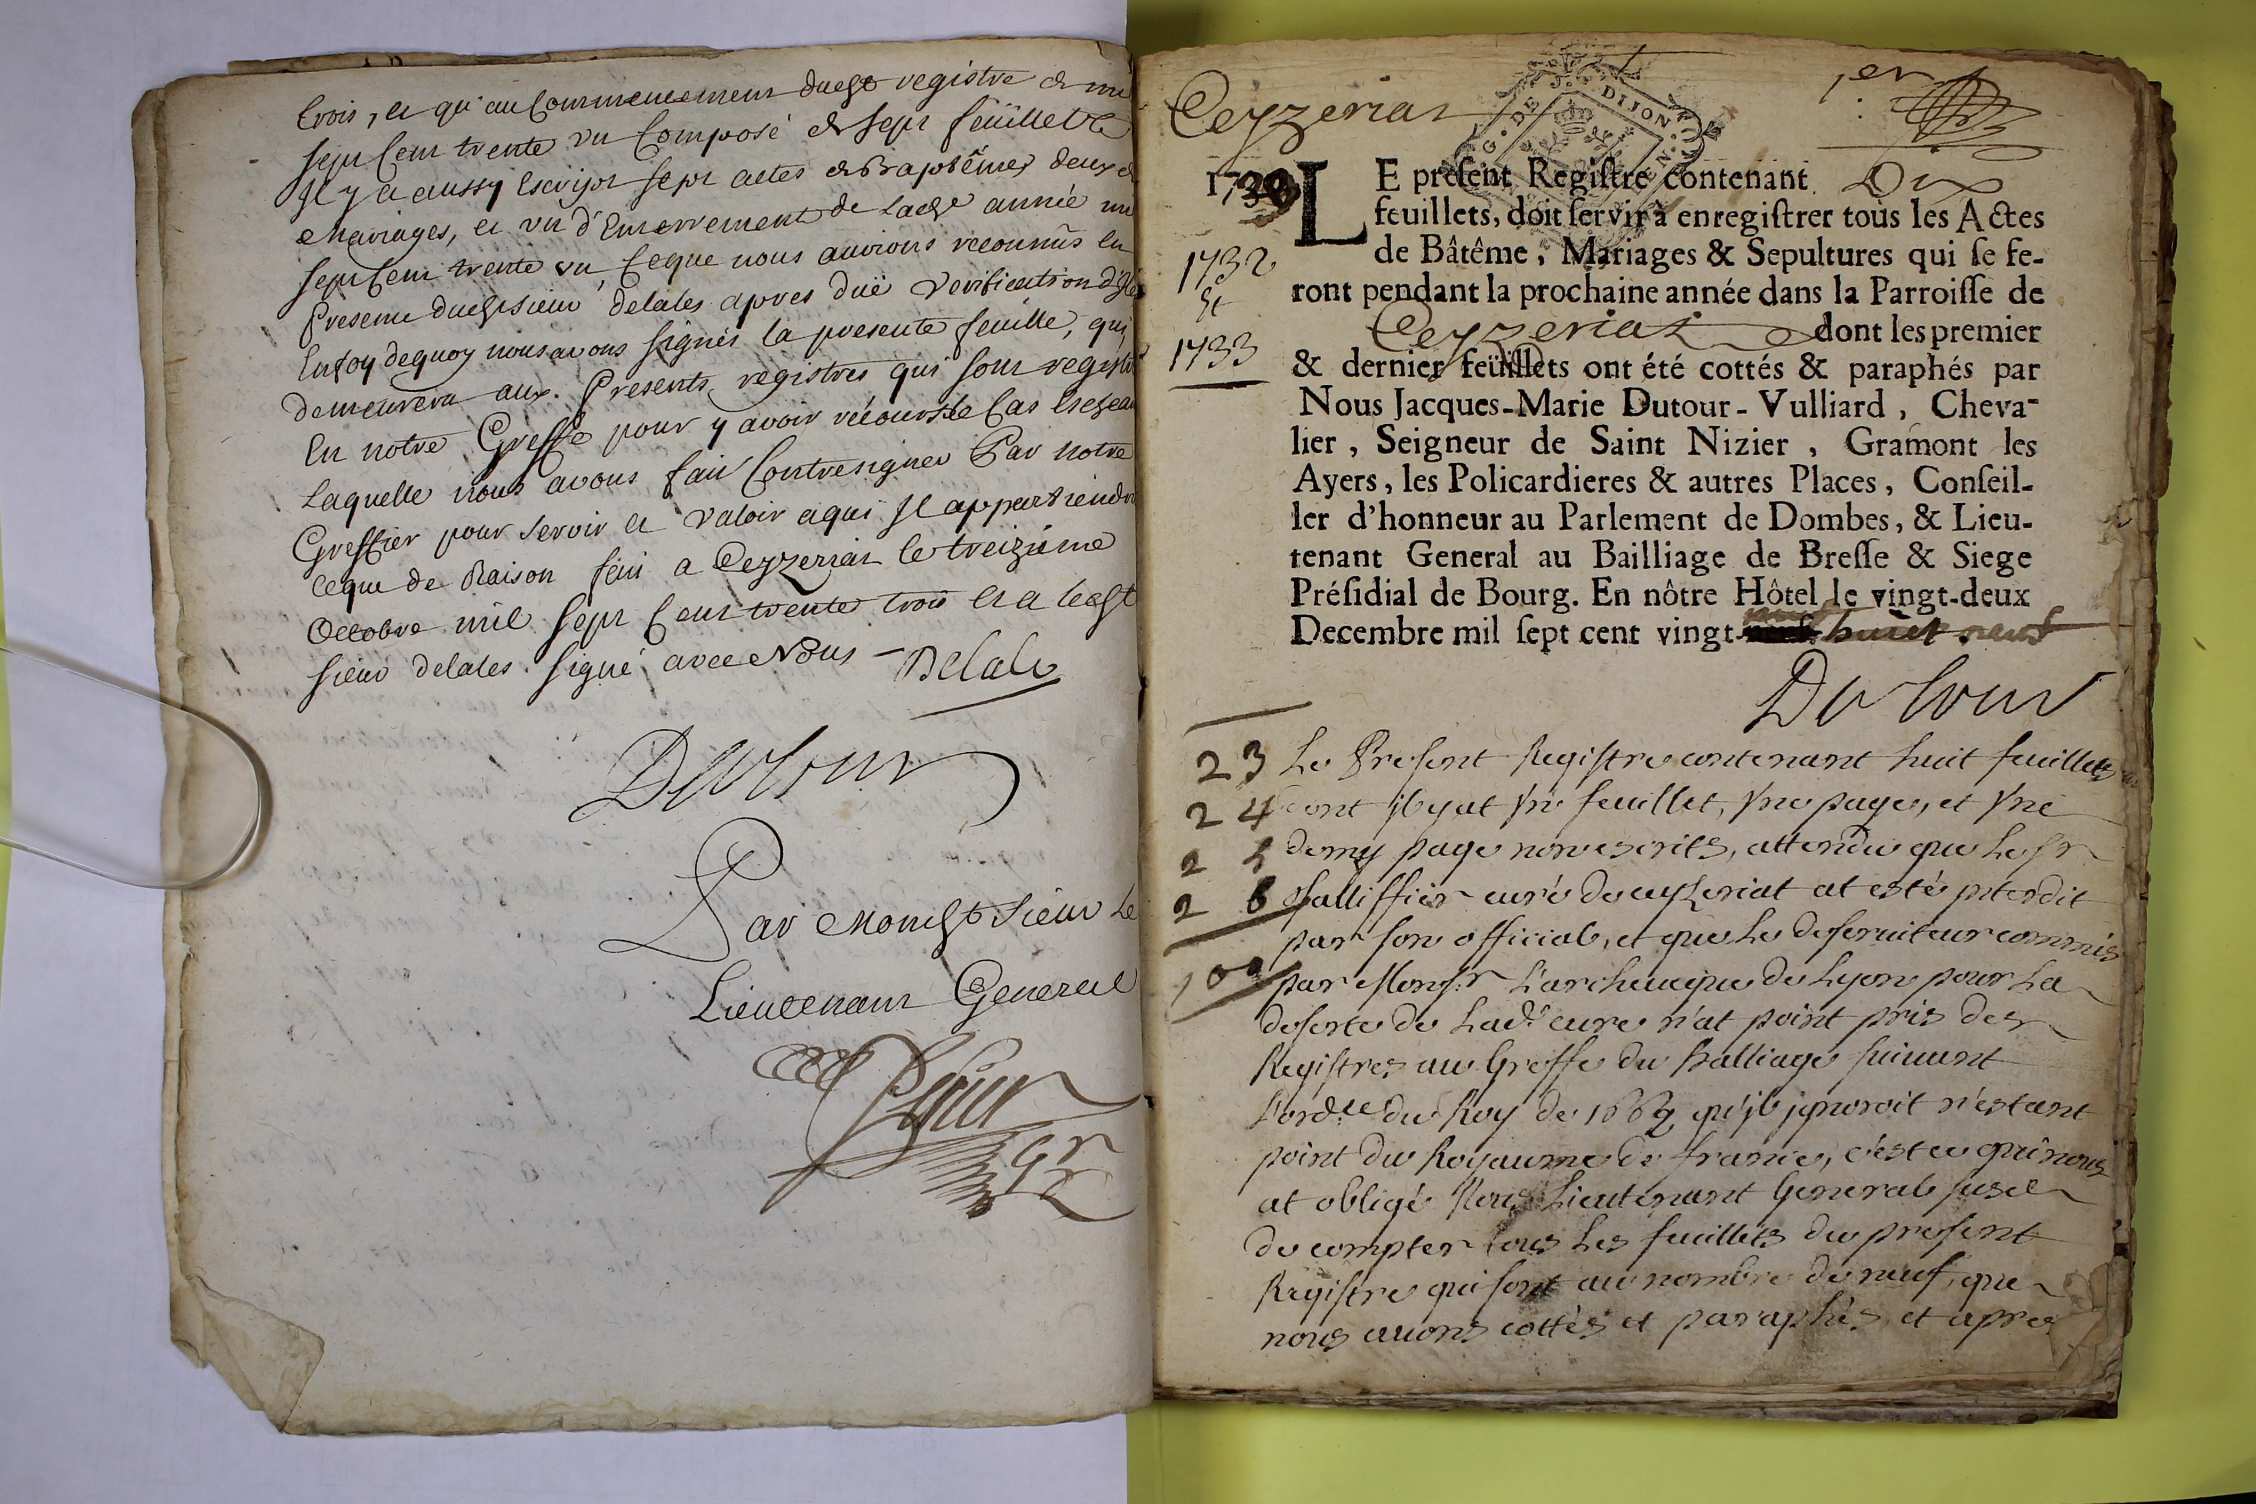 trois, et qu'au commencement dudt registre de mil
sept cent trente un composé de sept feüillets
Il y a aussy escript sept actes de Baptêmes deux de
Mariages, et un d'Enterrement de ladte année mil
sept cent trente un ce que nous aurions reconnüs en
presence dudt sieur Delales apres düe verification d'Iceux
En foy de quoy nous avons signés la presente feuille, qui
demeurera aux presents registres qui sont registres
En notre Greffe pour y avoir recours le cas escheant
Laquelle nous avons fait contresigner Par notre
Greffier pour servir et valoir a qui Il appartiendra
ce que de Raison fait a Ceyzeriat le treiziéme
Octobre mil sept cent trente trois et a ledt
sieur Delales signé avec Nous - Delales
Dutour
Par mondt sieur Le
Lieutenant General
Ceyzeriat
1er
G. DE DIJON
1730
1732
et
1733
LE present Registre contenant Dix
feuillets, doit servir à enregistrer tous les Actes
de Bâtême, Mariages & Sepultures qui se fe-
ront pendant la prochaine année dans la Parroisse de
Ceyzeriat dont les premier
& dernier feüillets ont été cottés & paraphés par
Nous Jacques-Marie Dutour-Vulliard, Cheva-
lier, Seigneur de Saint Nizier, Gramont les
Ayers, les Policardieres & autres Places, Conseil-
ler d'honneur au Parlement de Dombes, & Lieu-
tenant General au Bailliage de Bresse & Siege
Présidial de Bourg. En nôtre Hôtel le vingt-deux
Decembre mil sept cent vingt huict neuf
Dutour
23
24
25
26
100
Le Present Registre contenant huit feuillets
dont il y at un feuillet, une page, et une
demy page non escrits, attendu que le sr
curé de ceyzeriat at esté interdit
par son official, et que le deseruiteur commis
par Monsr L'archeueque de Lyon pour La
deserte de Lade cure n'at point pris des
Registres au Greffe du Balliage suiuant
L'ordce du Roy de 1667 qu'il ignoroit n'estant
point du Royaume de france, c'est ce qui nous
at obligé Nous Lieutenant General susd
de compter tous Les feuillets du present
Registre qui sont au nombre de neuf, que
nous auons cottés et paraphés, et apres